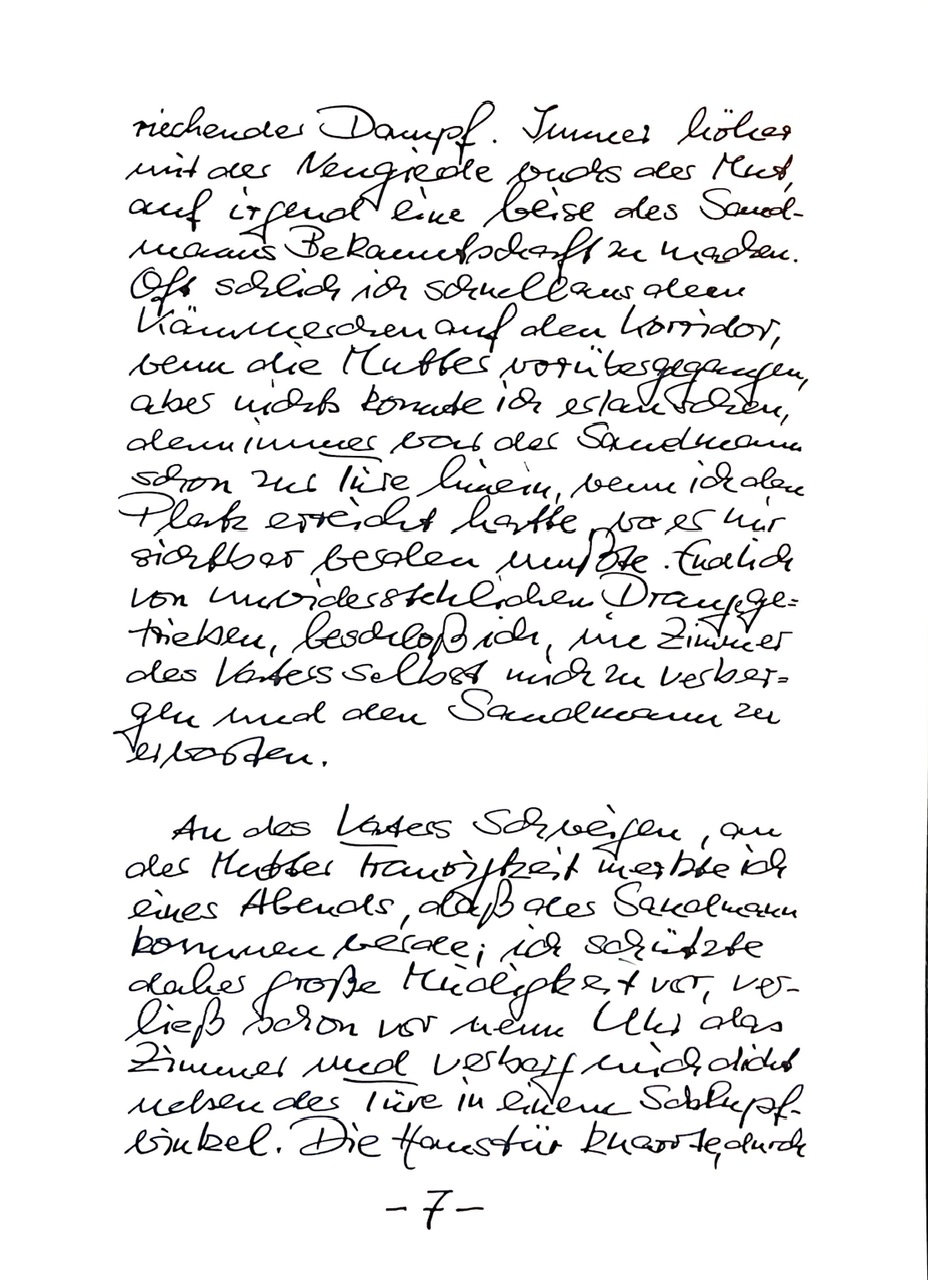 riechender Dampf. Immer höher
mit der Neugierde wuchs der Mut,
auf irgend eine Weise des Sand-
manns Bekanntschaft zu machen.
Oft schlich ich schnell aus dem
Kämmerchen auf den Korridor,
wenn die Mutter vorübergegangen,
aber nichts konnte ich erlauschen,
denn immer war der Sandmann
schon zur Türe hinein, wenn ich den
Platz erreicht hatte, wo er mir
sichtbar werden mußte. Endlich
von unwiderstehlichem Drange ge=
trieben, beschloß ich, im Zimmer
des Vaters selbst mich zu verber=
gen und den Sandmann zu
erwarten.
An des Vaters Schweigen, an
der Mutter Traurigkeit merkte ich
eines Abends, daß der Sandmann
kommen werde; ich schützte
daher große Müdigkeit vor, ver-
ließ schon vor neun Uhr das
Zimmer und verbarg mich dicht
neben der Türe in einem Schlupf-
winkel. Die Haustür knarrte, durch
- 7 -